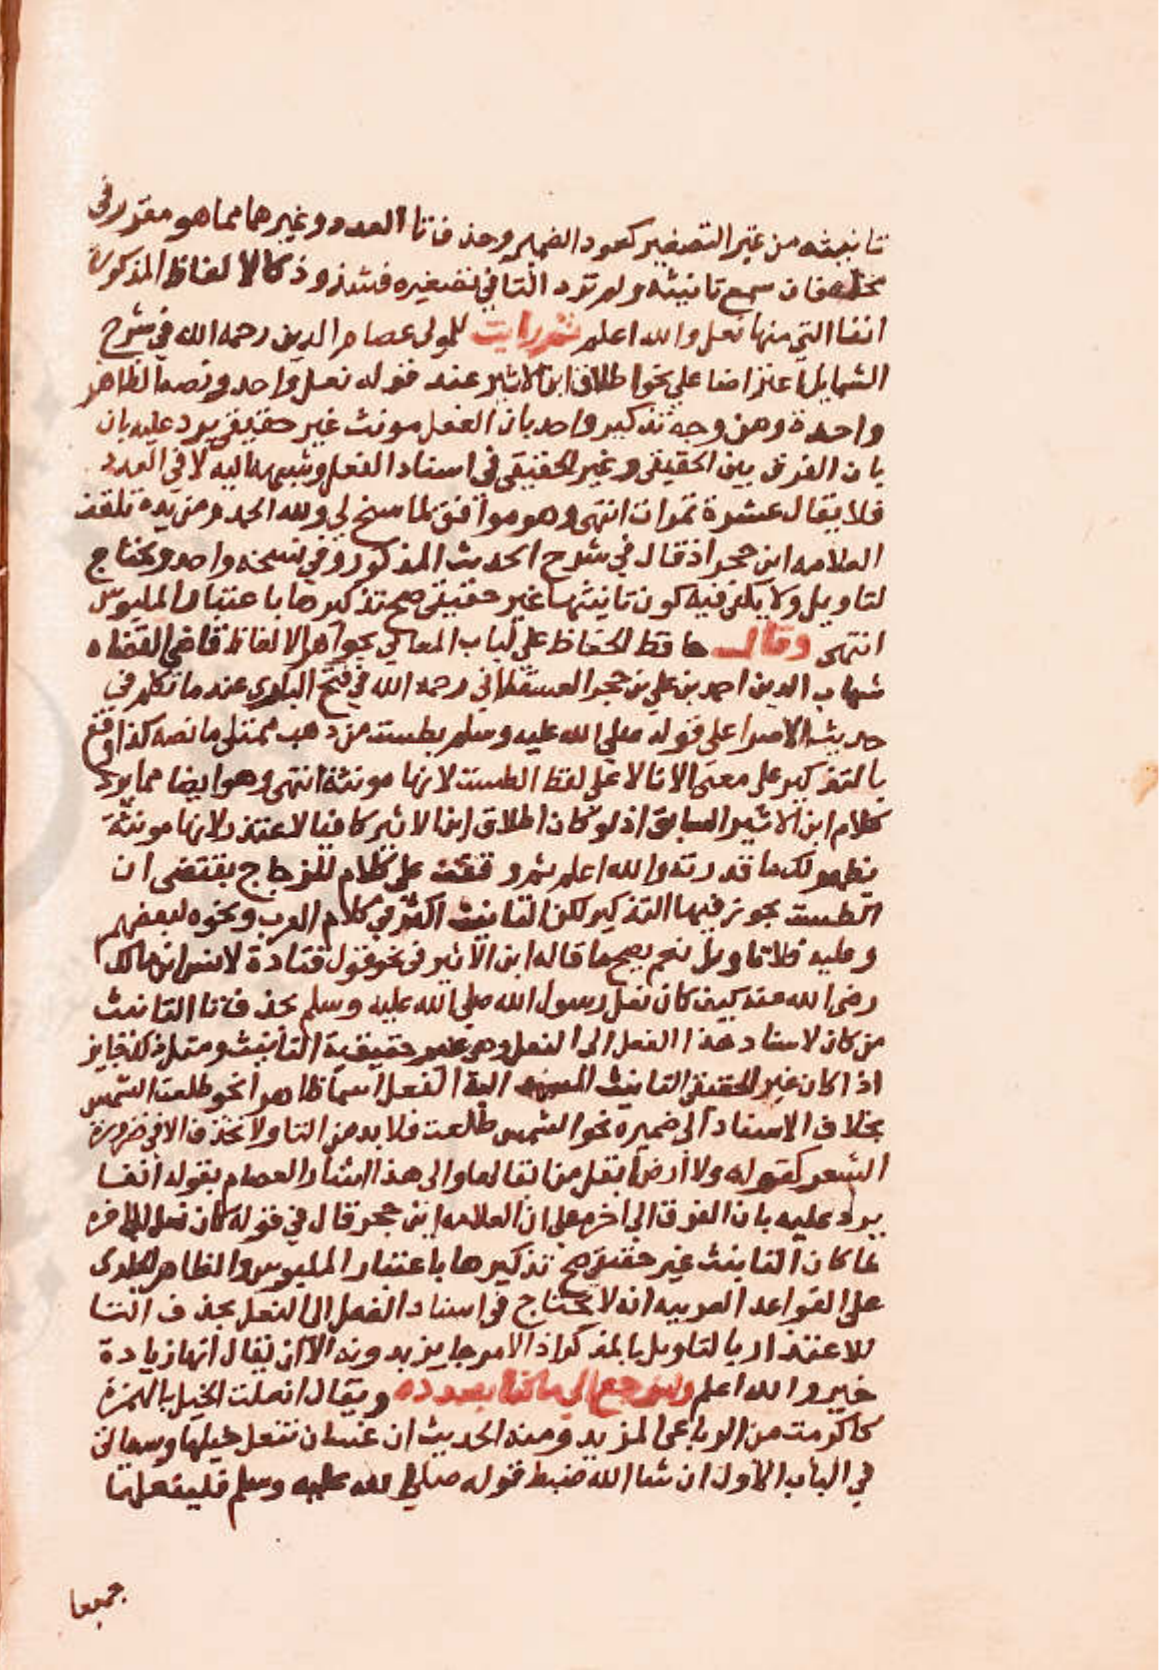 تانيثه من غير التصغير كعود الضمير وحذف تا العدد وغيرهما مما هو مقرر في
محله فان سمع تانيثه ولم ترد التا في تصغيره فشذوذ كالالفاظ المذكورة
انفا التي منها نعل والله اعلم ثم رايت للمولى عصام الدين رحمه الله في شرح
الشمايل اعتراضا على نحو اطلاق ابن الاثير عند قوله نعل واحد ونصه الظاهر
واحدة وهن وجه تذكير واحد بان النعل مونث غير حقيقي يرد عليه بان
بان الفرق بين الحقيقي وغير الحقيقي في اسناد الفعل وشبهه اليه لا في العدد
فلا يقال عشرة تمرات انتهى وهو موافق لما سنح لي ولله الحمد
العلامه ابن حجر اذ قال في شرح الحديث المذكور وفي نسخه واحد ويحتاج
لتاويل ولا يكفي فيه كون تانيثها غير حقيقي صح تذكيرها باعتبار الملبوس
انتهى وقال حافظ الحفاظ على لباب المعاني بجواهر الالفاظ قاضي القضاه
شهاب الدين احمد بن علي بن حجر العسقلاني رحمه الله في فتح الباري عند ما تكلم في
حديث الاسرا على قوله صلى الله عليه وسلم بطست من ذهب ممتلي ما نصه كذا وقع
بالتذكير على معنى الانا لا على لفظ الطست لانها مونثة انتهى وهو ايضا مما يرد
كلام ابن الاثير السابق اذ لو كان اطلاق ابن الاثير كافيا لاعتذر لانها مونثة
يظهر لك ما قدرته والله اعلم ثم وقفت على كلام للزجاج يقتضي ان
الطست يجوز فيها التذكير لكن التانيث اكثر في كلام العرب ونحوه لبعضهم
وعليه فلا تاويل نعم يصح ما قاله ابن الاثير في نحو قول قتادة لانس ابن مالك
رضي الله عنه كيف كان نعل رسول الله صلى الله عليه وسلم بحذف تا التانيث
من كان لاسناد هذا الفعل الى النعل وهي غير حقيقية التانيث ومثل ذلك جايز
اذا كان غير الحقيقي التانيث المسند اليه الفعل اسما ظاهرا نحو طلعت الشمس
بخلاف الاسناد الى ضميره نحو الشمس طلعت فلا بد من التا ولا تحذف الا في ضرورة
الشعر كقوله ولا ارض ابقل ابقالها والى هذا اشار العصام بقوله انفا
يرد عليه بان الفرق الى اخره على ان العلامه ابن حجر قال في قوله كان نعل الى اخره
لما كان التانيث غير حقيقي صح تذكيرها باعتبار الملبوس والظاهر
على القواعد العربيه انه لا يحتاج في اسناد الفعل الى النعل بحذف التا
للاعتذار بالتاويل بالمذكر اذ الامر جايز بدونه الا ان يقال انها زيادة
خير والله اعلم ولنرجع الى ما كنا بصدده ويقال انعلت الخيل بالهمزة
كاكرمت من الرباعي المزيد ومنه الحديث ان غسان تنعل خيلها وسياتي
في الباب الاول ان شا الله ضبط قوله صلى الله عليه وسلم فلينعلهما
جميعا